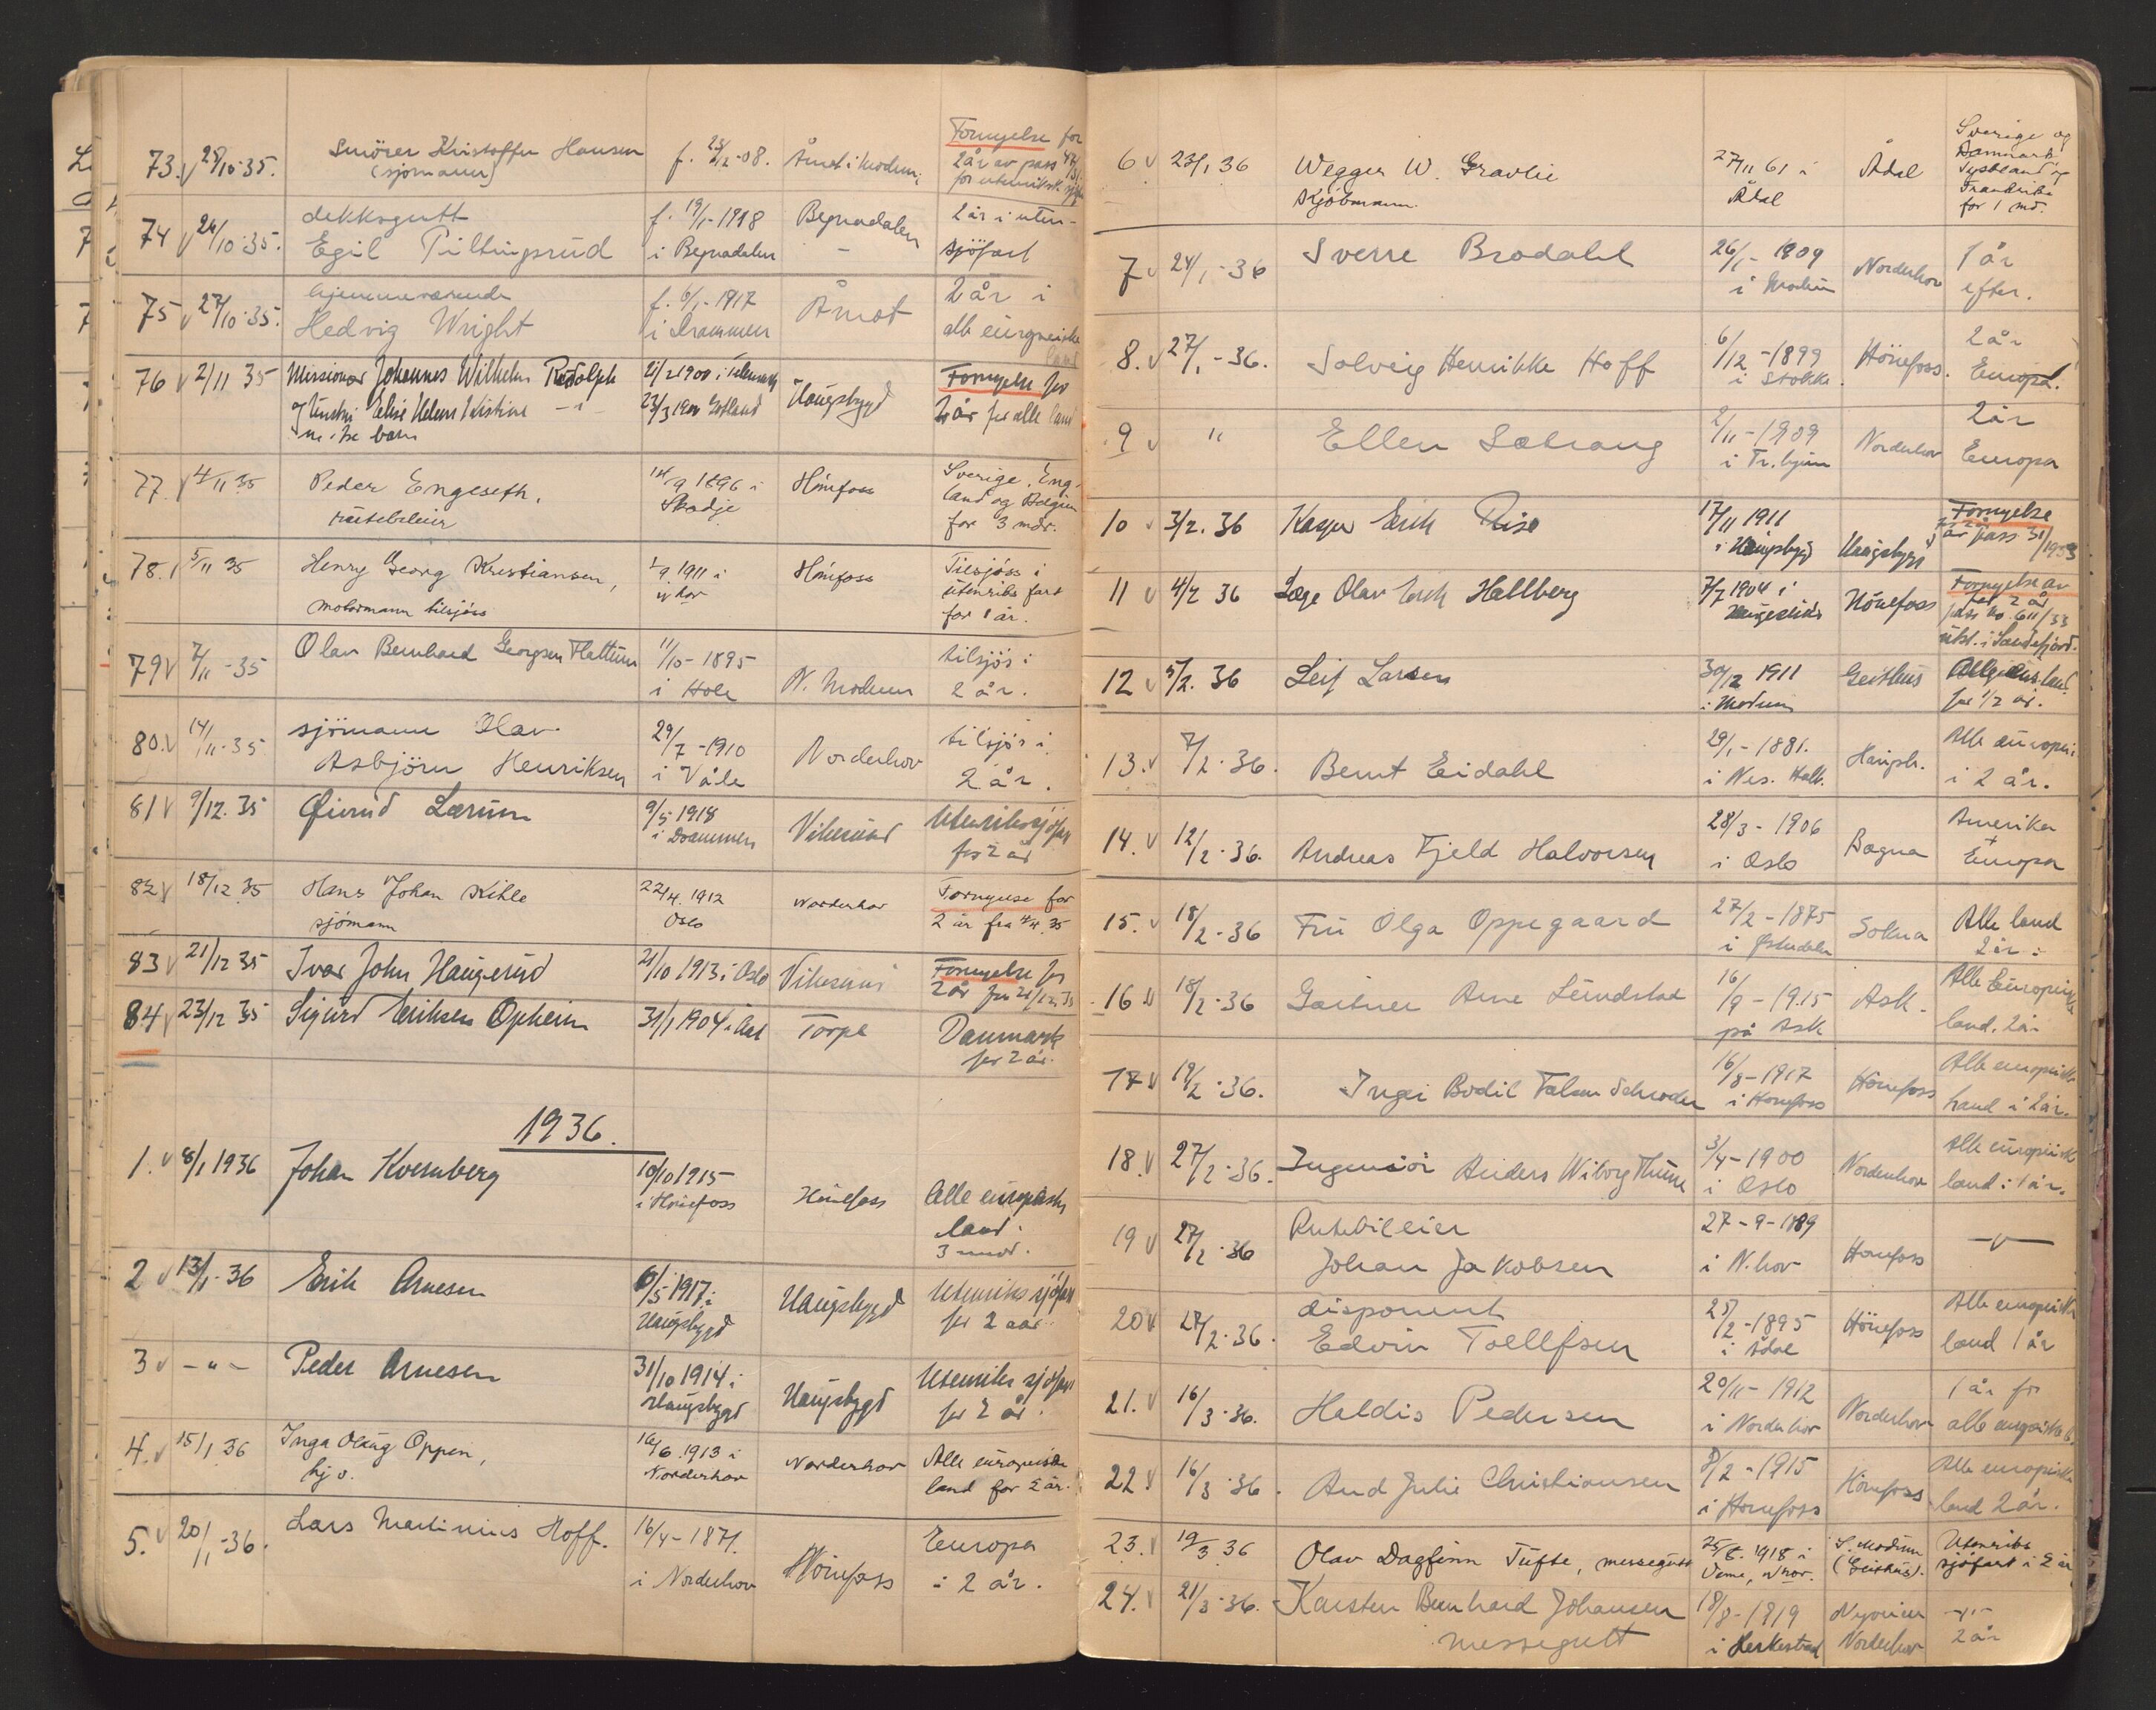 73. 25/10-35. Smörer Kristoffer Hansen f. 25/12-08. Åmot i Modum; Fornyelse for
(sjömann) 2 år av pass
for utenriksk. sjøfart
74 26/10-35. dekksgutt f. 19/1-1918 Begnadalen 2 år i uten-
Egil Piltingsrud i Begnadalen - sjöfart
75 27/10-35. hjemmeværende f. 6/1-1917 Åmot 2 år i
Hedvig Wright i Drammen alle europeiske
land
76 2/11 35 Missionær Johannes Wilhelm Rudolph 21/2 1900 i Fornyelse for
og hustru Elise Helene Kristine - i - 23/3 Haugsbygd 2 år for alle land
77. 4/11 35 Peder Engeseth, 14/9 1896 i Hönefoss Sverige, Eng-
rutebileier Skodje land og Belgien
for 3 mdr.
78. 5/11 35 Henry Georg Kristiansen, 1911 i Hönefoss Tilsjöss i
motormann tilsjöss N hov utenriks fart
for 1 år.
79 7/11-35 Olav Bernhard Georgsen Flattum 11/10-1895 tilsjös i
i Hole N. Modum 2 år.
80. 14/11-35 sjömann Olav 29/7-1910 tilsjös i
Asbjörn Henriksen i Våle Norderhov 2 år.
81 9/12. 35 Øivind Lærum 9/5 1918 Vikersund Utenrikssjöfart
i Drammen for 2 år
82 18/12 35 Hans Johan Kihle 22/4. 1912 Norderhov Fornyelse for
sjömann Oslo 2 år fra 4/12. 35
83 21/12 35 Ivar John Haugerud 21/10 1913 i Oslo Vikersund Fornyelse for
2 år fra 21/12. 35
84 23/12 35 Sigurd Eriksen Opheim 31/1 1904 i Aal Torpe Danmark
for 2 år.
1936.
1. 8/1 1936 Johan Kvernberg 10/10 1915
i Hönefoss Hönefoss Alle europeiske
land.
3 mnd.
2 13/1-36 Erik Arnesen 6/5 1917 i Haugsbygd Utenriks sjöfart
Haugsbygd for 2 aar.
3 -"- Peder Arnesen 31/10 1914 i Haugsbygd Utenriks sjöfart
Haugsbygd for 2 år.
4. 15/1 36 Inga Olaug Oppen, 16/6 1913 i Norderhov Alle europeiske
hj.v. Norderhov land for 2 år.
5. 20/1-36. Lars Martinius Hoff. 16/4-1871. Europa
i Norderhov Hönefoss i 2 år.
6 23/1 36 Wegger W. Gravlie 27/11 61 i Ådal Sverige og
Kjöbmann. Ådal Danmark
Tyskland og
Frankrike
for 1 md.
7 24/1-36 Sverre Brodahl 26/1-1909 Norderhov 1 år
i Modum efter.
8. 27/1-36. Solveig Henrikke Hoff 6/12-1899 Hönefoss. 2 år
i Stokke Europa.
9 " Ellen Sætrang 2/11-1909 Norderhov 2 år
i Tr.hjem Europa
10 3/2. 36 Kasper Erik Rise 17/11 1911 Fornyelse
i Haugsbygd Haugsbygd år pass 31/1933
11 4/2 36 Læge Olav Erik Hallberg 7/7 1904 i Hönefoss Fornyelse av
for 2 år
pass No. 611/33
utst. i Sandefjord.
12 5/2. 36 Leif Larsen 30/12 1911 Geithus Alle eur. land
i Modum for 1/2 år.
13. 7/2-36. Bernt Eidahl 29/1-1881. Haugsb. Alle europeis.
i Nes. Hall. i 2 år.
14. 12/2-36. Andreas Fjeld Halvorsen 28/3-1906 Bagna Amerika
i Oslo + Europa
15. 18/2-36 Fru Olga Oppegaard 27/2-1875 Sokna Alle land
i Østerdalen 2 år
16 18/2-36 Gartner Arne Lundstad 16/9-1915 Ask. Alle Europeiske
på Ask land. 2 år
17 19/2-36. Inger Bodil Falsen Schrøder 16/8-1917 Hönefoss Alle europeiske
i Hönefoss land i 2 år.
18. 27/2-36. Ingeniör Anders Wiborg Thune 3/4-1900 Norderhov Alle europeisk
i Oslo land i 1 år.
19 27/2-36 Rutebileier 27-9-1889 Hönefoss -"-
Johan Jakobsen i N.hov
20 27/2-36. disponent 25/2-1895 Hönefoss Alle europeiske
Edvin Tollefsen i Ådal land 1 år
21. 16/3-36. Haldis Pedersen 20/11-1912 Norderhov 1 år for
i Norderhov alle europeiske l.
22 16/3-36. Aud Julie Christiansen 8/2-1915 Hönefoss Alle europeiske
i Hönefoss land 2 år.
23. 19/3 36 Olav Dagfinn Tufte, messegutt 25/8-1918 i S. Modum Utenriks
Veme, N hov. (Geithus). sjöfart i 2 år
24. 21/3-36. Karsten Bernhard Johansen 18/8-1919 -"-
messegutt i Heskestad Norderhov 2 år